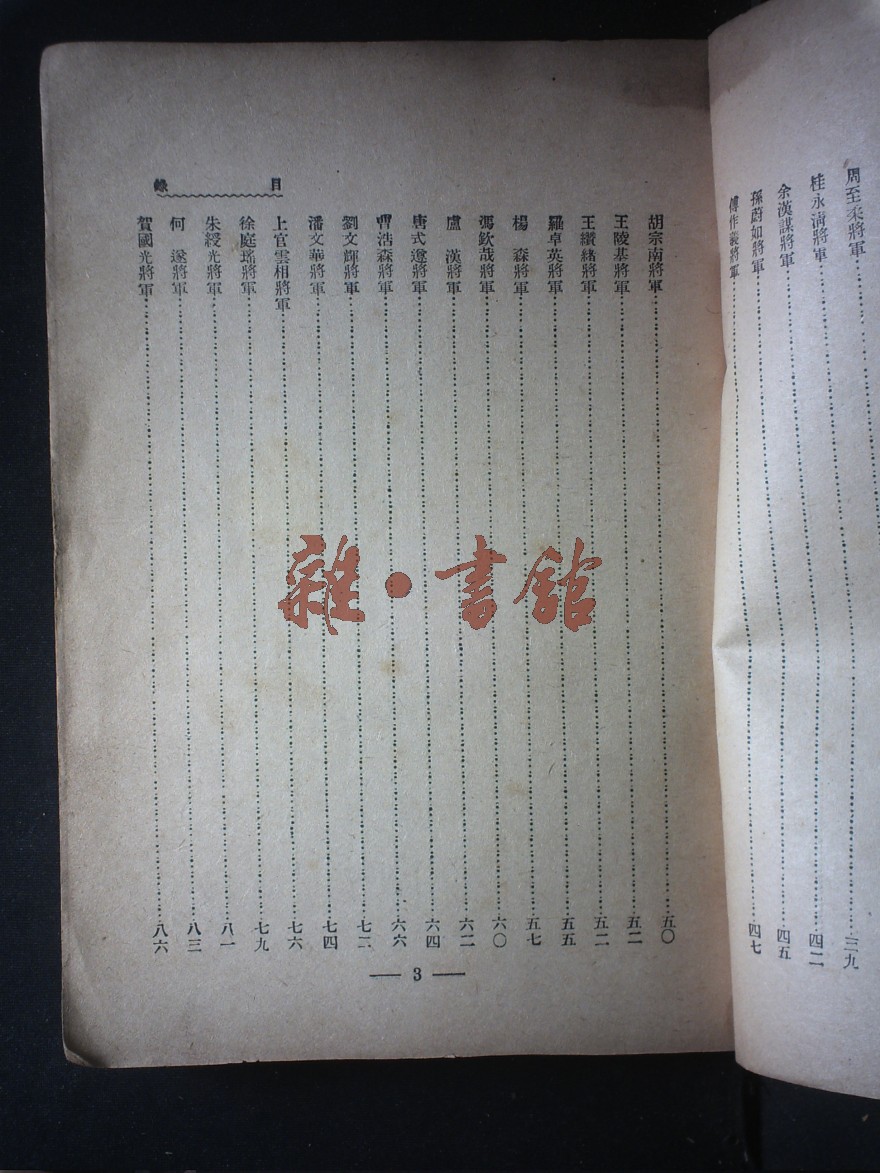 周至柔將軍……三九
桂永清將軍……四二
余漢謀將軍……四五
孫蔚如將軍……四七
傅作義將軍……
目錄
胡宗南將軍……五〇
王陵基將軍……五二
王纘緒將軍……五二
羅卓英將軍……五五
楊　森將軍……五七
馮欽哉將軍……六〇
盧　漢將軍……六二
唐式遵將軍……六四
曹浩森將軍……六六
劉文輝將軍……七二
潘文華將軍……七四
上官雲相將軍……七六
徐庭瑤將軍……七九
朱綬光將軍……八一
何　遂將軍……八三
賀國光將軍……八六
— 3 —
雜·書館